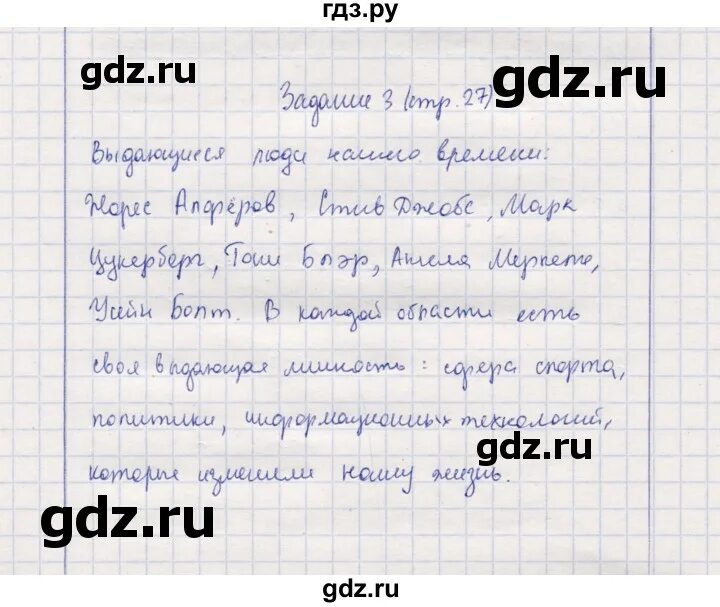 гдз.ру
gdz.ru
Задание 3 (стр. 27)
gdz.ru
Выдающиеся люди нашего времени:
Жорес Алфёров, Стив Джобс, Марк
Цукерберг, Тони Блэр, Ангела Меркель,
Усейн Болт. В каждой области есть
своя выдающая личность: сфера спорта,
политики, информационных технологий,
gdz.ru
которые изменили нашу жизнь.
gdz.ru
gdz.ru